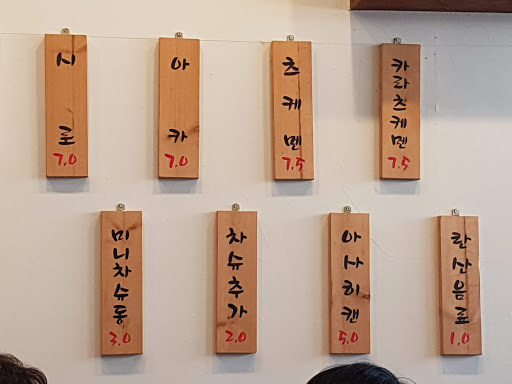 시로 7.0
아카 7.0
츠케멘 7.5
카라츠케멘 7.5
미니차슈동 3.0
차슈추가 2.0
아사히캔 5.0
탄산음료 1.0